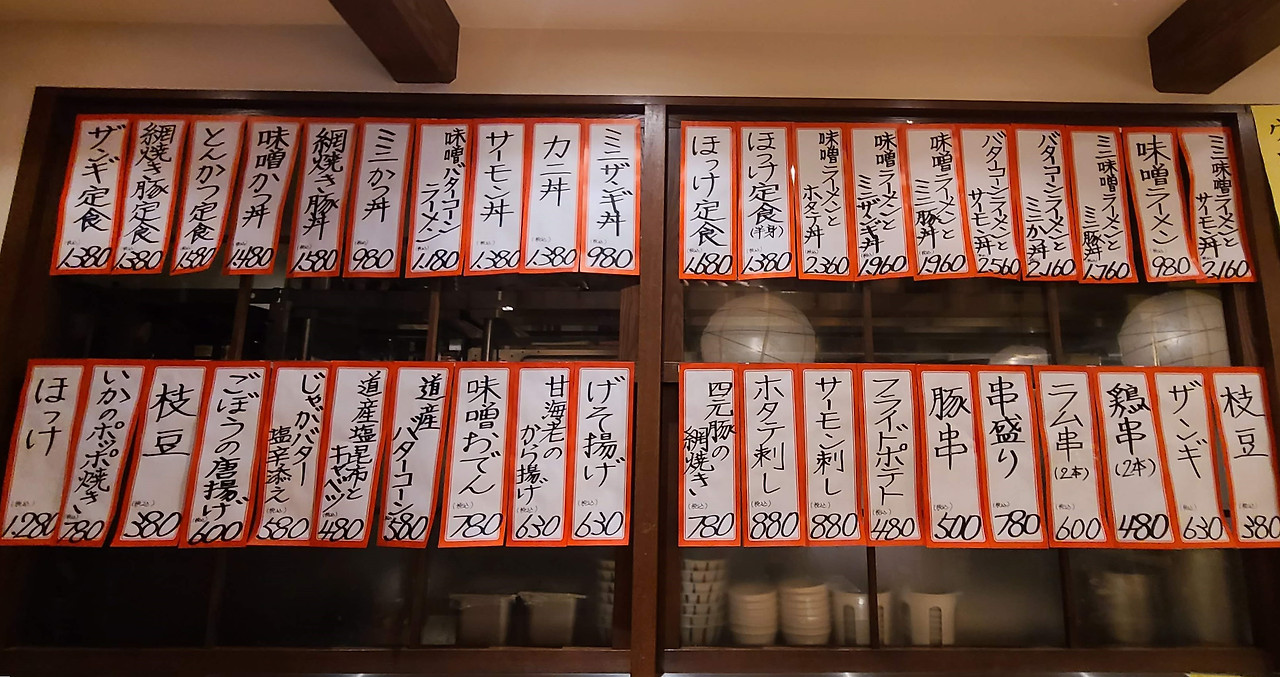 ミニ味噌ラーメンと
サーモン丼
(税込)
2,160
味噌ラーメン
(税込)
980
ミニ味噌ラーメンと
ミニ豚丼
(税込)
1,760
バターコーンラーメンと
ミニかつ丼
(税込)
2,160
バターコーンラーメンと
サーモン丼
(税込)
2,560
味噌ラーメンと
ミニ豚丼
(税込)
1,960
味噌ラーメンと
ミニザンギ丼
(税込)
1,960
味噌ラーメンと
ホタテ丼
(税込)
2,360
ほっけ定食
(半身)
(税込)
1,380
ほっけ定食
(税込)
1,680
ミニザンギ丼
(税込)
980
カニ丼
(税込)
1,380
サーモン丼
(税込)
1,380
味噌バターコーン
ラーメン
(税込)
1,180
ミニかつ丼
(税込)
980
網焼き豚丼
(税込)
1,580
味噌かつ丼
(税込)
1,480
とんかつ定食
(税込)
1,580
網焼き豚定食
(税込)
1,380
ザンギ定食
(税込)
1,380
枝豆
(税込)
380
ザンギ
(税込)
630
鶏串
(2本)
(税込)
480
ラム串
(2本)
(税込)
600
串盛り
(税込)
780
豚串
(税込)
500
フライドポテト
(税込)
480
サーモン刺し
(税込)
880
ホタテ刺し
(税込)
880
四元豚の
網焼き
(税込)
780
げそ揚げ
(税込)
630
甘海老の
から揚げ
(税込)
630
味噌おでん
(税込)
780
道産
バターコーン
(税込)
580
道産塩昆布と
キャベツ
(税込)
480
じゃがバター
塩辛添え
(税込)
580
ごぼうの唐揚げ
(税込)
600
枝豆
(税込)
380
いかのポッポ焼き
(税込)
780
ほっけ
(税込)
1,280